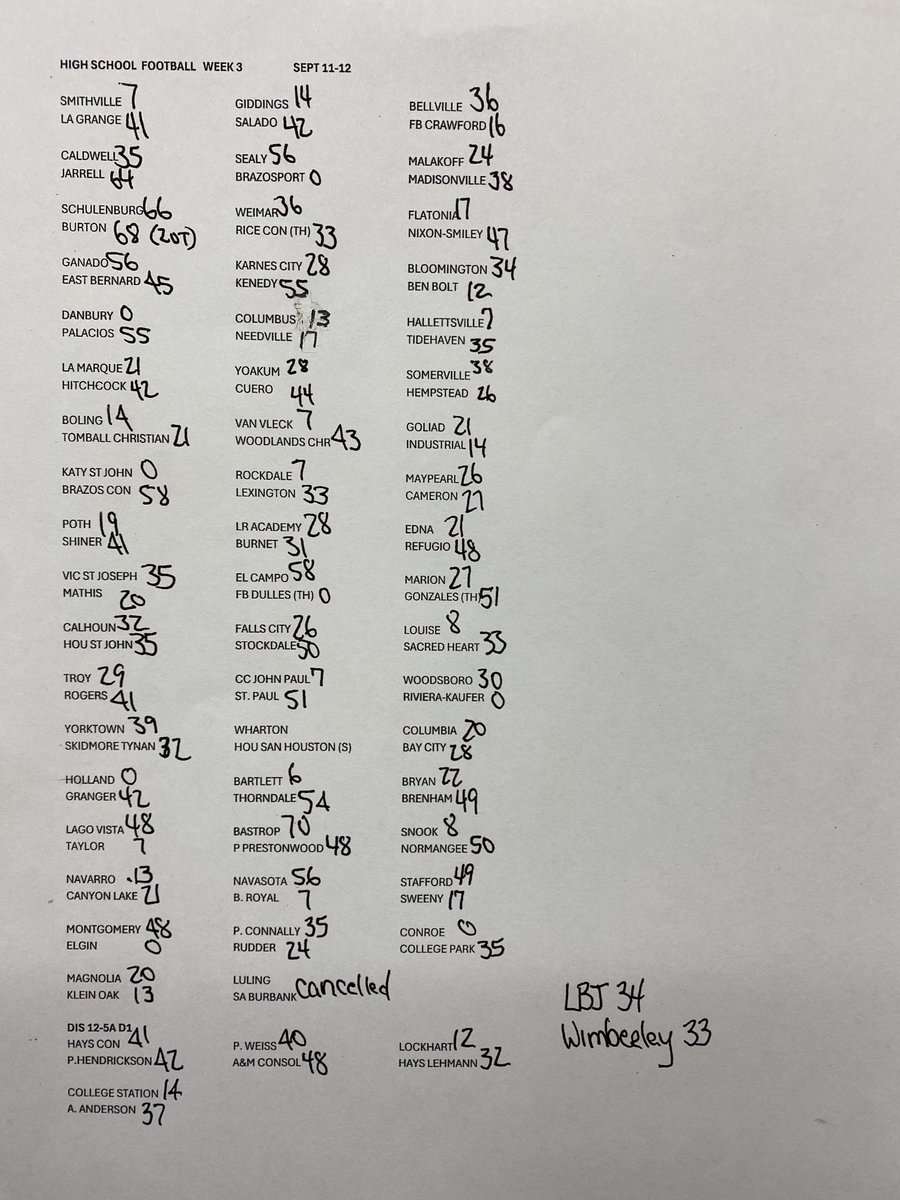 HIGH SCHOOL FOOTBALL WEEK 3 SEPT 11-12
SMITHVILLE 7
LA GRANGE 41
CALDWELL 35
JARRELL 64
SCHULENBURG 66
BURTON 68 (2OT)
GANADO 56
EAST BERNARD 45
DANBURY 0
PALACIOS 55
LA MARQUE 21
HITCHCOCK 42
BOLING 14
TOMBALL CHRISTIAN 21
KATY ST JOHN 0
BRAZOS CON 58
POTH 19
SHINER 41
VIC ST JOSEPH 35
MATHIS 20
CALHOUN 32
HOU ST JOHN 35
TROY 29
ROGERS 41
YORKTOWN 39
SKIDMORE TYNAN 32
HOLLAND 0
GRANGER 42
LAGO VISTA 48
TAYLOR 7
NAVARRO 13
CANYON LAKE 21
MONTGOMERY 48
ELGIN 0
MAGNOLIA 20
KLEIN OAK 13
DIS 12-5A D1
HAYS CON 41
P.HENDRICKSON 42
COLLEGE STATION 14
A. ANDERSON 37
GIDDINGS 14
SALADO 42
SEALY 56
BRAZOSPORT 0
WEIMAR 36
RICE CON (TH) 33
KARNES CITY 28
KENEDY 55
COLUMBUS 13
NEEDVILLE 17
YOAKUM 28
CUERO 44
VAN VLECK 7
WOODLANDS CHR 43
ROCKDALE 7
LEXINGTON 33
LR ACADEMY 28
BURNET 31
EL CAMPO 58
FB DULLES (TH) 0
FALLS CITY 26
STOCKDALE 50
CC JOHN PAUL 7
ST. PAUL 51
WHARTON
HOU SAN HOUSTON (S)
BARTLETT 6
THORNDALE 54
BASTROP 70
P PRESTONWOOD 48
NAVASOTA 56
B. ROYAL 7
P. CONNALLY 35
RUDDER 24
LULING
SA BURBANK cancelled
P. WEISS 40
A&M CONSOL 48
BELLVILLE 36
FB CRAWFORD 16
MALAKOFF 24
MADISONVILLE 38
FLATONIA 17
NIXON-SMILEY 47
BLOOMINGTON 34
BEN BOLT 12
HALLETTSVILLE 7
TIDEHAVEN 35
SOMERVILLE 38
HEMPSTEAD 26
GOLIAD 21
INDUSTRIAL 14
MAYPEARL 26
CAMERON 27
EDNA 21
REFUGIO 48
MARION 27
GONZALES (TH) 51
LOUISE 8
SACRED HEART 33
WOODSBORO 30
RIVIERA-KAUFER 0
COLUMBIA 20
BAY CITY 28
BRYAN 22
BRENHAM 49
SNOOK 8
NORMANGEE 50
STAFFORD 49
SWEENY 17
CONROE 0
COLLEGE PARK 35
LOCKHART 12
HAYS LEHMANN 32
LBJ 34
Wimbeeley 33